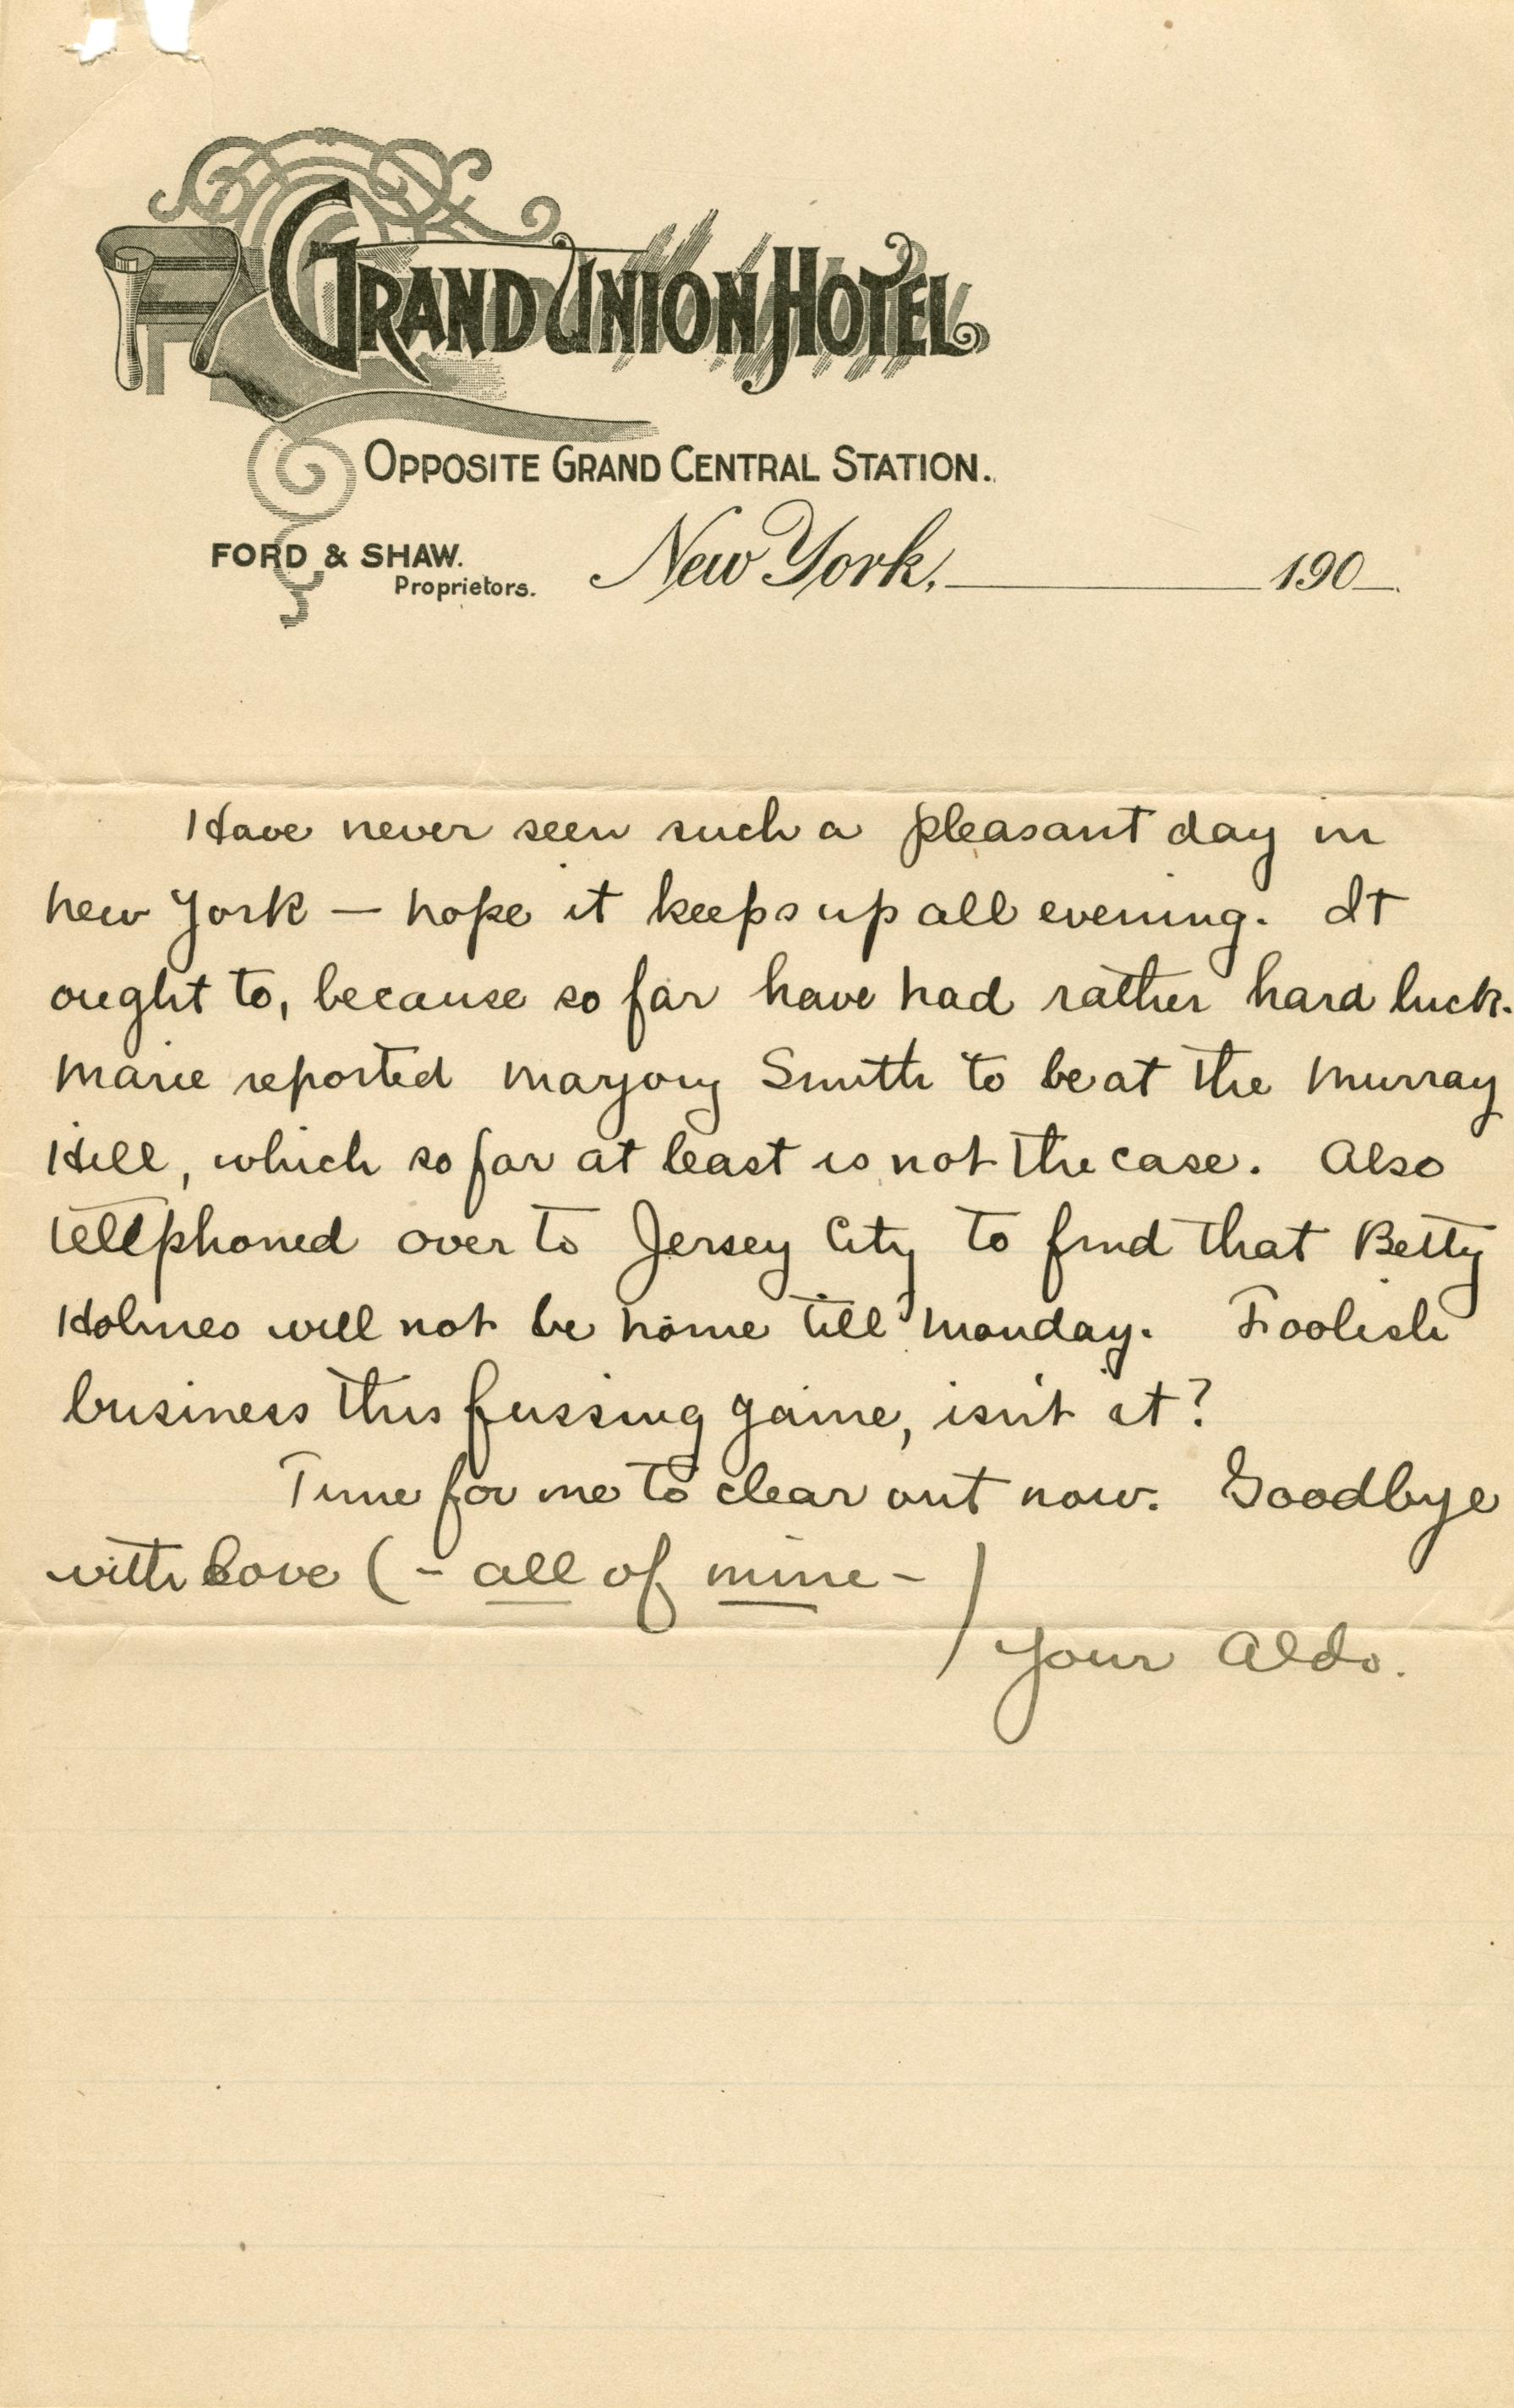 GRAND UNION HOTEL
OPPOSITE GRAND CENTRAL STATION.
FORD & SHAW.
Proprietors.
New York, 190
Have never seen such a pleasant day in
New York — hope it keeps up all evening. It
ought to, because so far have had rather hard luck.
Marie reported Marjory Smith to be at the Murray
Hill, which so far at least is not the case. Also
telephoned over to Jersey City to find that Betty
Holmes will not be home till Monday. Foolish
business this fussing game, isn't it?
Time for me to clear out now. Goodbye
with love (- all of mine - )
Your Aldo.